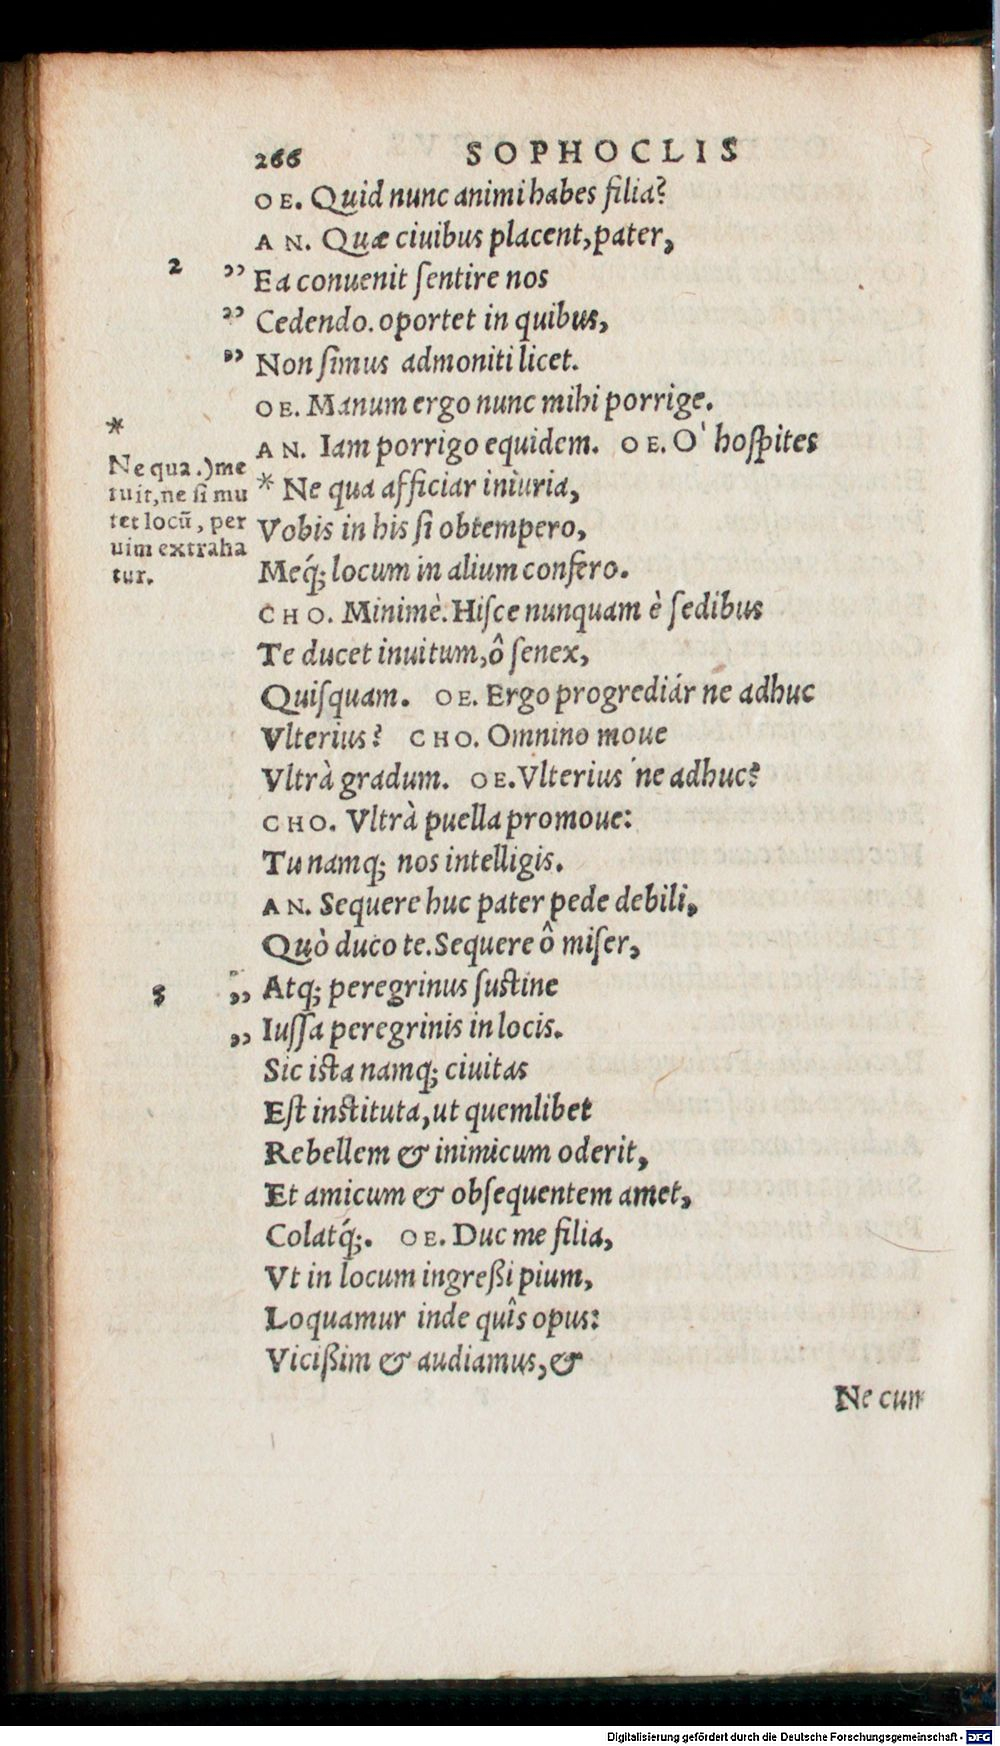 266 SOPHOCLIS
OE. Quid nunc animi habes filia?
AN. Quæ ciuibus placent, pater,
2 ” Ea conuenit ſentire nos
” Cedendo. oportet in quibus,
” Non ſimus admoniti licet.
OE. Manum ergo nunc mihi porrige.
AN. Iam porrigo equidem. OE. O' hoſpites
* Ne qua afficiar iniuria,
Vobis in his ſi obtempero,
Meq́; locum in alium confero.
CHO. Minimè. Hiſce nunquam è ſedibus
Te ducet inuitum, ô ſenex,
Quiſquam. OE. Ergo progrediár ne adhuc
Vlterius? CHO. Omnino moue
Vltrà gradum. OE. Vlterius 'ne adhuc?
CHO. Vltrà puella promoue:
Tu namq; nos intelligis.
AN. Sequere huc pater pede debili,
Quò duco te. Sequere ô miſer,
3 ,, Atq; peregrinus ſustine
,, Iuſſa peregrinis in locis.
Sic ista namq; ciuitas
Eſt instituta, ut quemlibet
Rebellem & inimicum oderit,
Et amicum & obſequentem amet,
Colatq́;. OE. Duc me filia,
Vt in locum ingreßi pium,
Loquamur inde quîs opus:
Vicißim & audiamus, &
Ne cum
*
Ne qua.) me
tuit, ne ſi mu
tet locũ, per
uim extraha
tur.
Digitalisierung gefördert durch die Deutsche Forschungsgemeinschaft - DFG